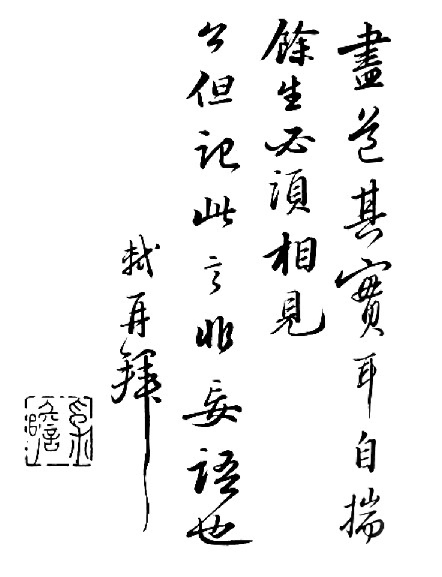 盡道其實耳自揣
餘生必須相見
公但記此言非妄語也
軾再拜